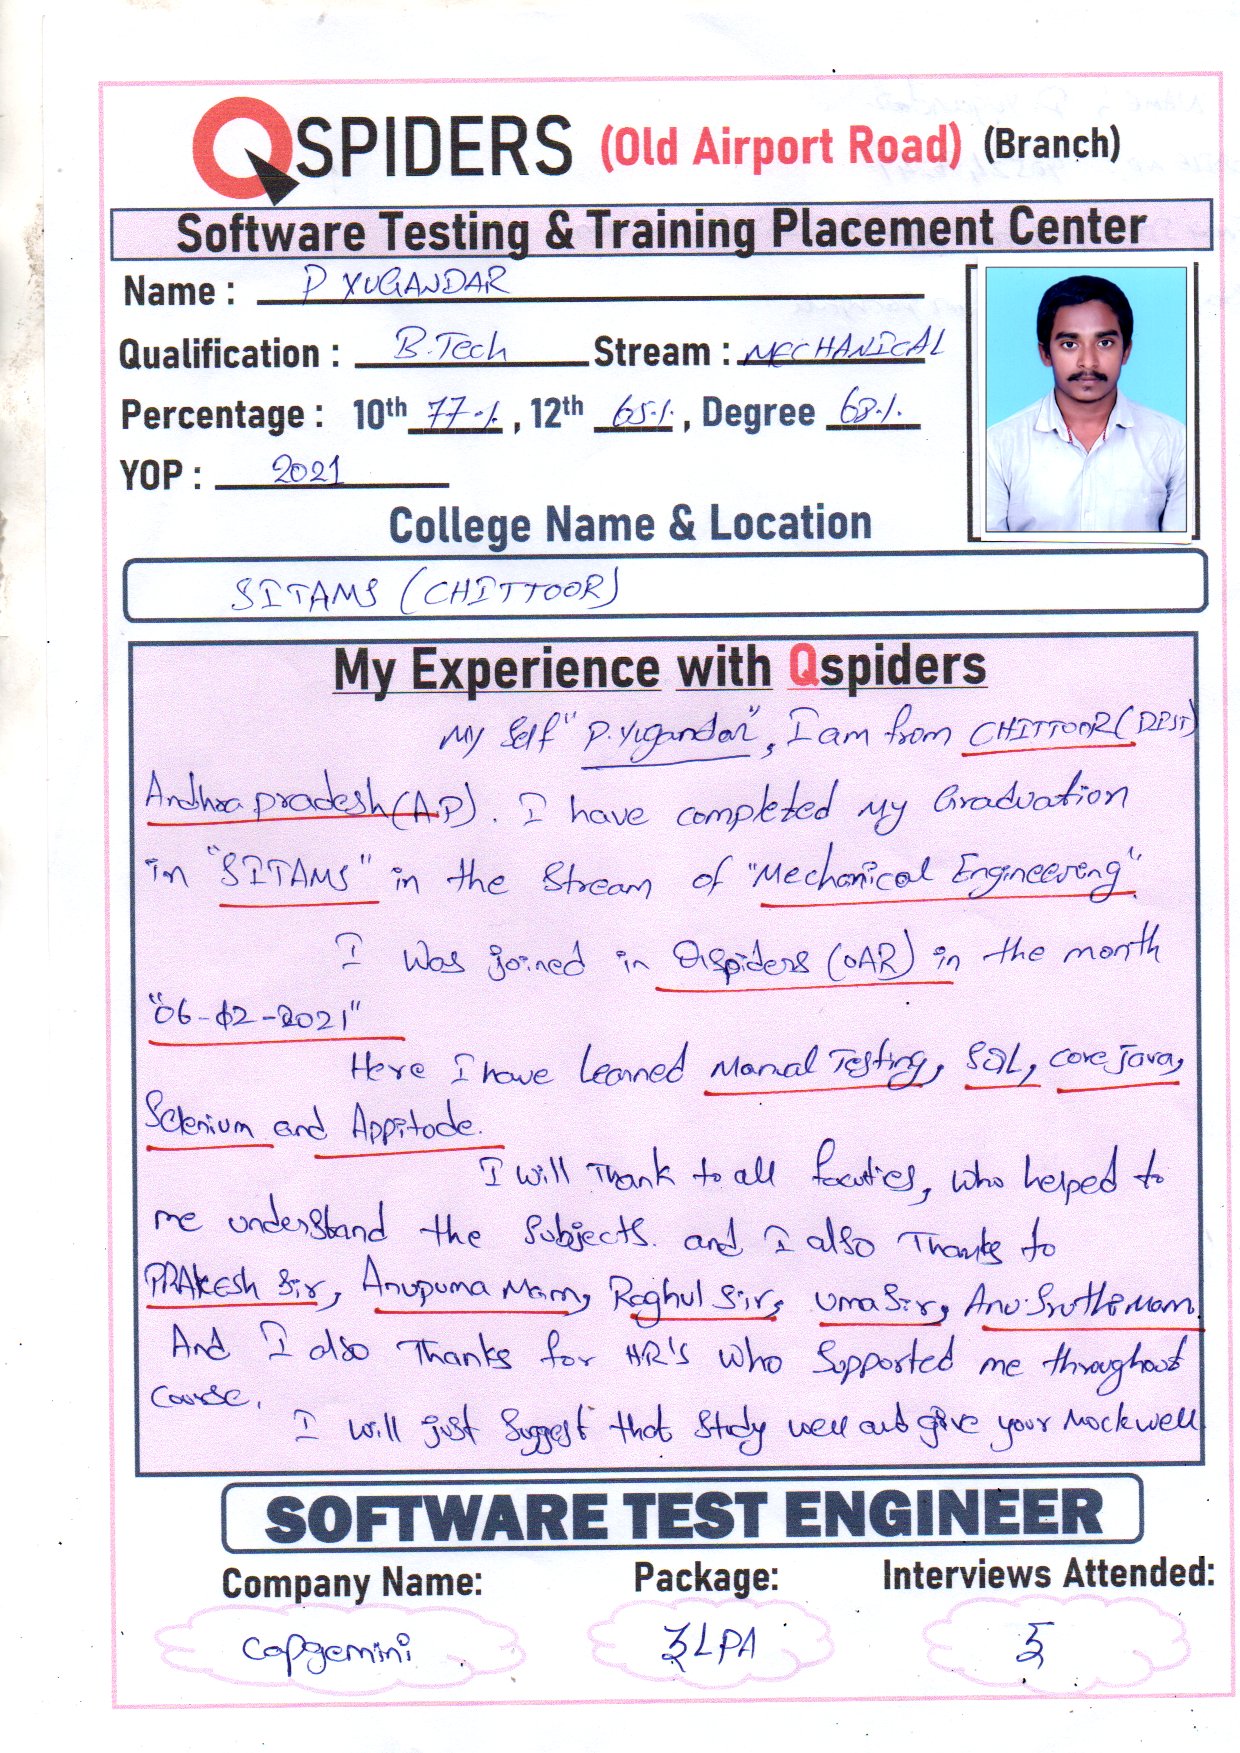 QSPIDERS (Old Airport Road) (Branch)
Software Testing & Training Placement Center
Name : P YUGANDAR
Qualification : B.Tech Stream : MECHANICAL
Percentage : 10th 77% , 12th 65% , Degree 68%
YOP : 2021
College Name & Location
SITAMS (CHITTOOR)
My Experience with Qspiders
My Self "P.Yugandar", I am from CHITTOOR (DIST)
Andhra pradesh (A.P). I have completed My Graduvation
in "SITAMS" in the Stream of "Mechanical Engineering".
I was joined in Qspiders (OAR) in the month
"06-02-2021"
Here I have Learned Manual Testing, SQL, core Java,
Selenium and Appitode.
I will Thank to all faculties, who helped to
me understand the Subjects. and I also Thanks to
PRAKESH Sir, Anupuma Mam, Raghul Sir, Uma Sir, Anu Sruthi Mam
And I also Thanks for HR'S who Supported me throughout
Course.
I will just Suggest that Study well and give your Mock well
SOFTWARE TEST ENGINEER
Company Name: Package: Interviews Attended:
Capgemini 3LPA